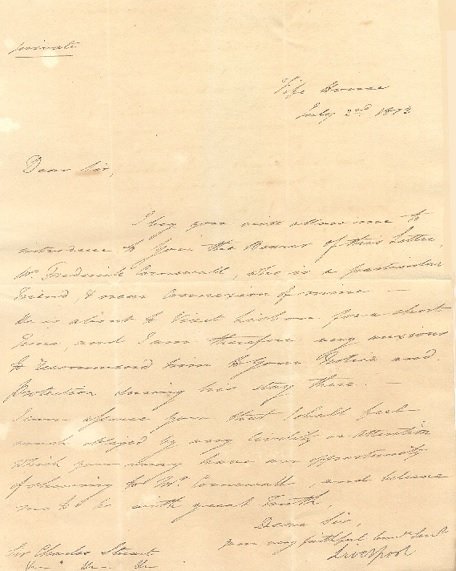 Private
Fife House
July 2nd 1813
Dear Sir,
I beg you will allow me to
introduce to You the Bearer of this Letter,
Mr. Frederick Cornewall, who is a particular
Friend, & near Connexion of mine –
He is about to Visit Lisbon for a short
Time and I am therefore very anxious
to recommend him to Your Notice and
Protection during his stay there. –
I can assure You that I shall feel
much obliged by any Civility or Attention
which you may have an opportunity
of shewing to Mr. Cornewall, and believe
me to be with great Truth,
Dear Sir,
your very faithful humle Servt
Liverpool
Sir Charles Stuart